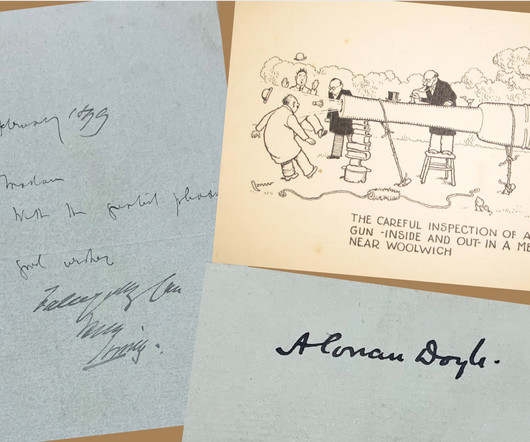 February 1899
Madam
With the greatest pleasure
good wishes
Irving.
THE CAREFUL INSPECTION OF A
GUN -INSIDE AND OUT- IN A ME
NEAR WOOLWICH
A Conan Doyle.